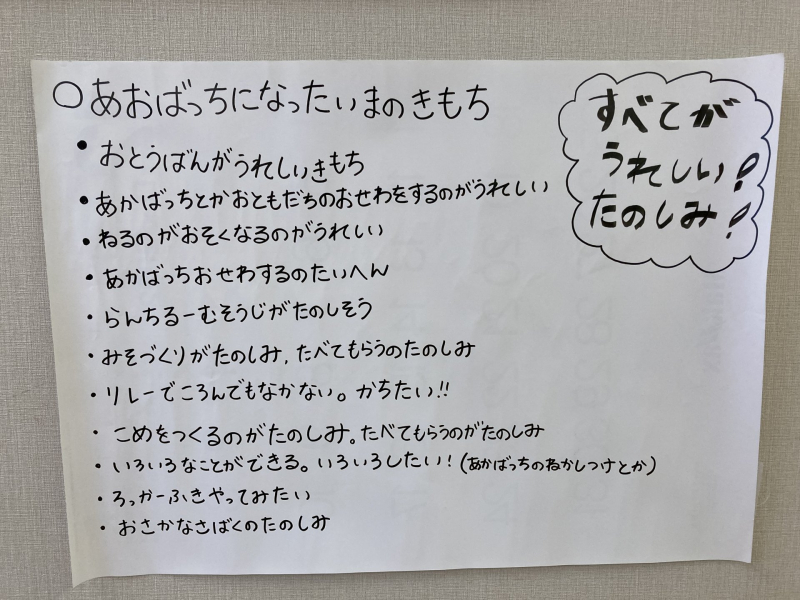 ○あおばっちになったいまのきもち
すべてが
うれしい!
たのしみ!
・おとうばんがうれしいきもち
・あかばっちとかおともだちのおせわをするのがうれしい
・ねるのがおそくなるのがうれしい
・あかばっちおせわするのたいへん
・らんちるーむそうじがたのしそう
・みそづくりがたのしみ,たべてもらうのたのしみ
・リレーでころんでもなかない。かちたい!!
・こめをつくるのがたのしみ。たべてもらうのがたのしみ
・いろいろなことができる。いろいろしたい!(あかばっちのねかしつけとか)
・ろっかーふきやってみたい
・おさかなさばくのたのしみ